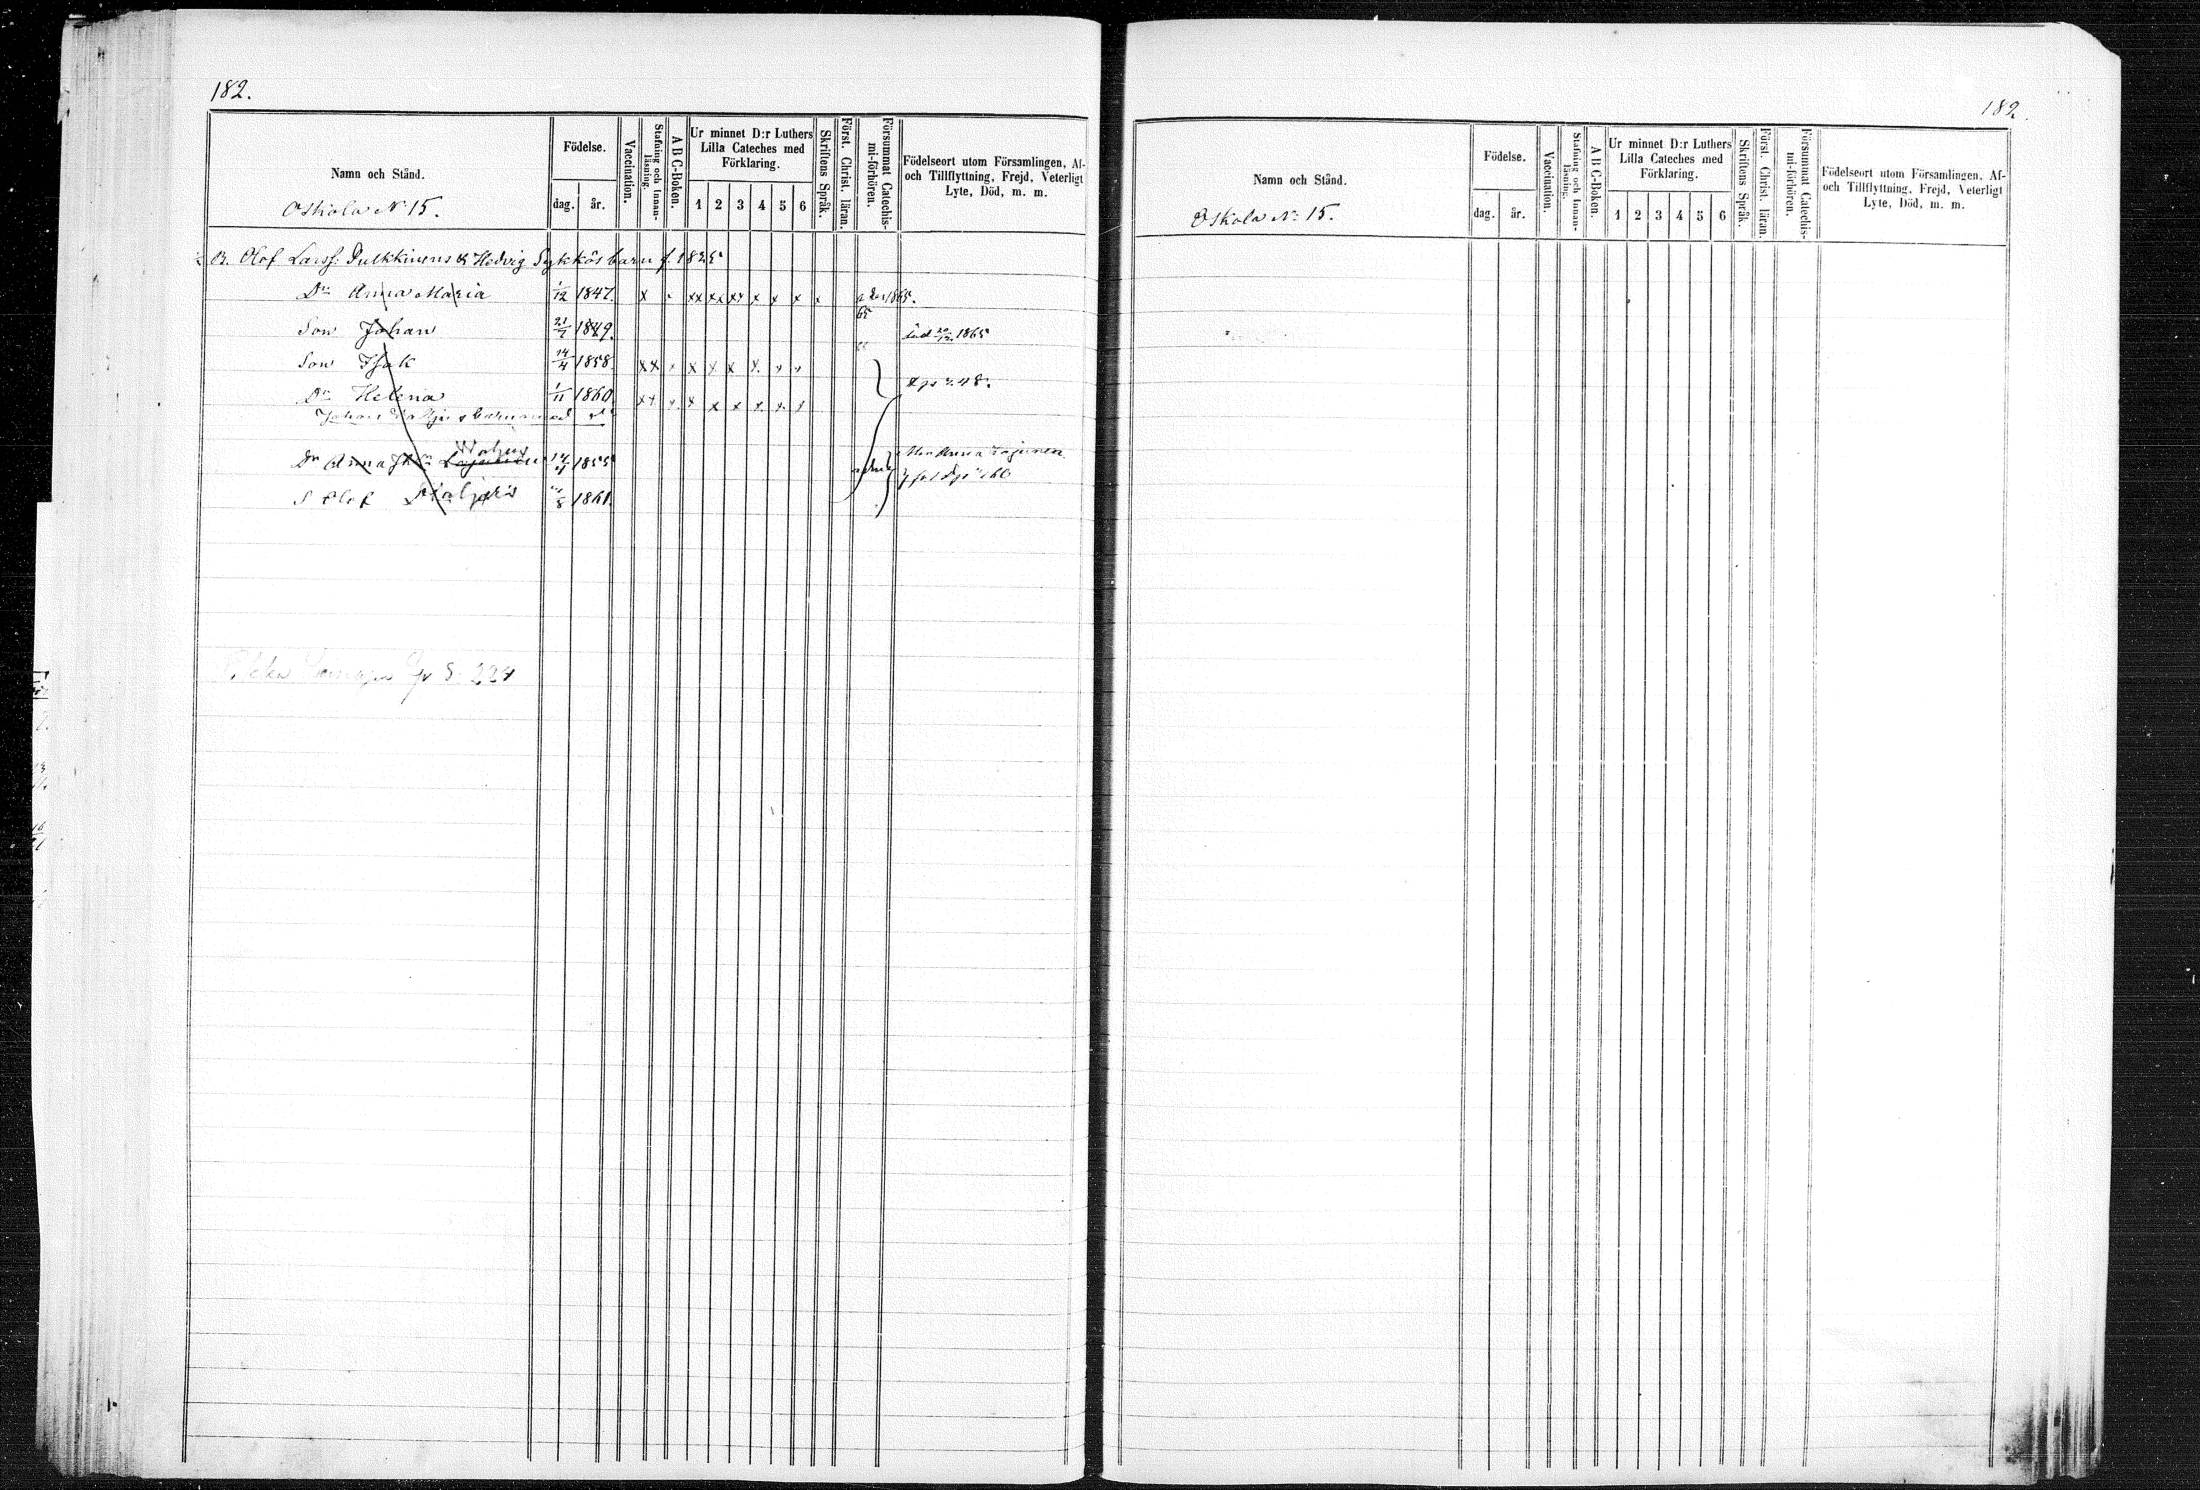 182.
Namn och Stånd.
Oskola N:o 15.
Födelse.
dag. år.
Vaccination.
Stafning och Innan-läsning.
A B C-Boken.
Ur minnet D:r Luthers
Lilla Cateches med
Förklaring.
1 2 3 4 5 6
Skriftens Språk.
Först. Christ. läran.
Försummat Catechis-
mi-förhören.
Födelseort utom Församlingen, Af-
och Tillflyttning, Frejd, Veterligt
Lyte, Död, m. m.
B. Olof Larss: Pulkkinens & Hedvig barn f. 1825
Dr Anna Maria 1/12 1847. x xx xx xx x x x x 1865.
65
Son Johan 21/7 1849. död 1865
Son Isak 14/4 1858. xx x x x x x x x
Dr Helena 1/11 1860. xx x x x x x x x
Johan
Dr Anna 1855 Anna Lajunen
S Olof 1861.
S. 224
182.
Namn och Stånd.
Oskola N:o 15.
Födelse.
dag. år.
Vaccination.
Stafning och Innan-läsning.
A B C-Boken.
Ur minnet D:r Luthers
Lilla Cateches med
Förklaring.
1 2 3 4 5 6
Skriftens Språk.
Först. Christ. läran.
Försummat Catechis-
mi-förhören.
Födelseort utom Församlingen, Af-
och Tillflyttning, Frejd, Veterligt
Lyte, Död, m. m.